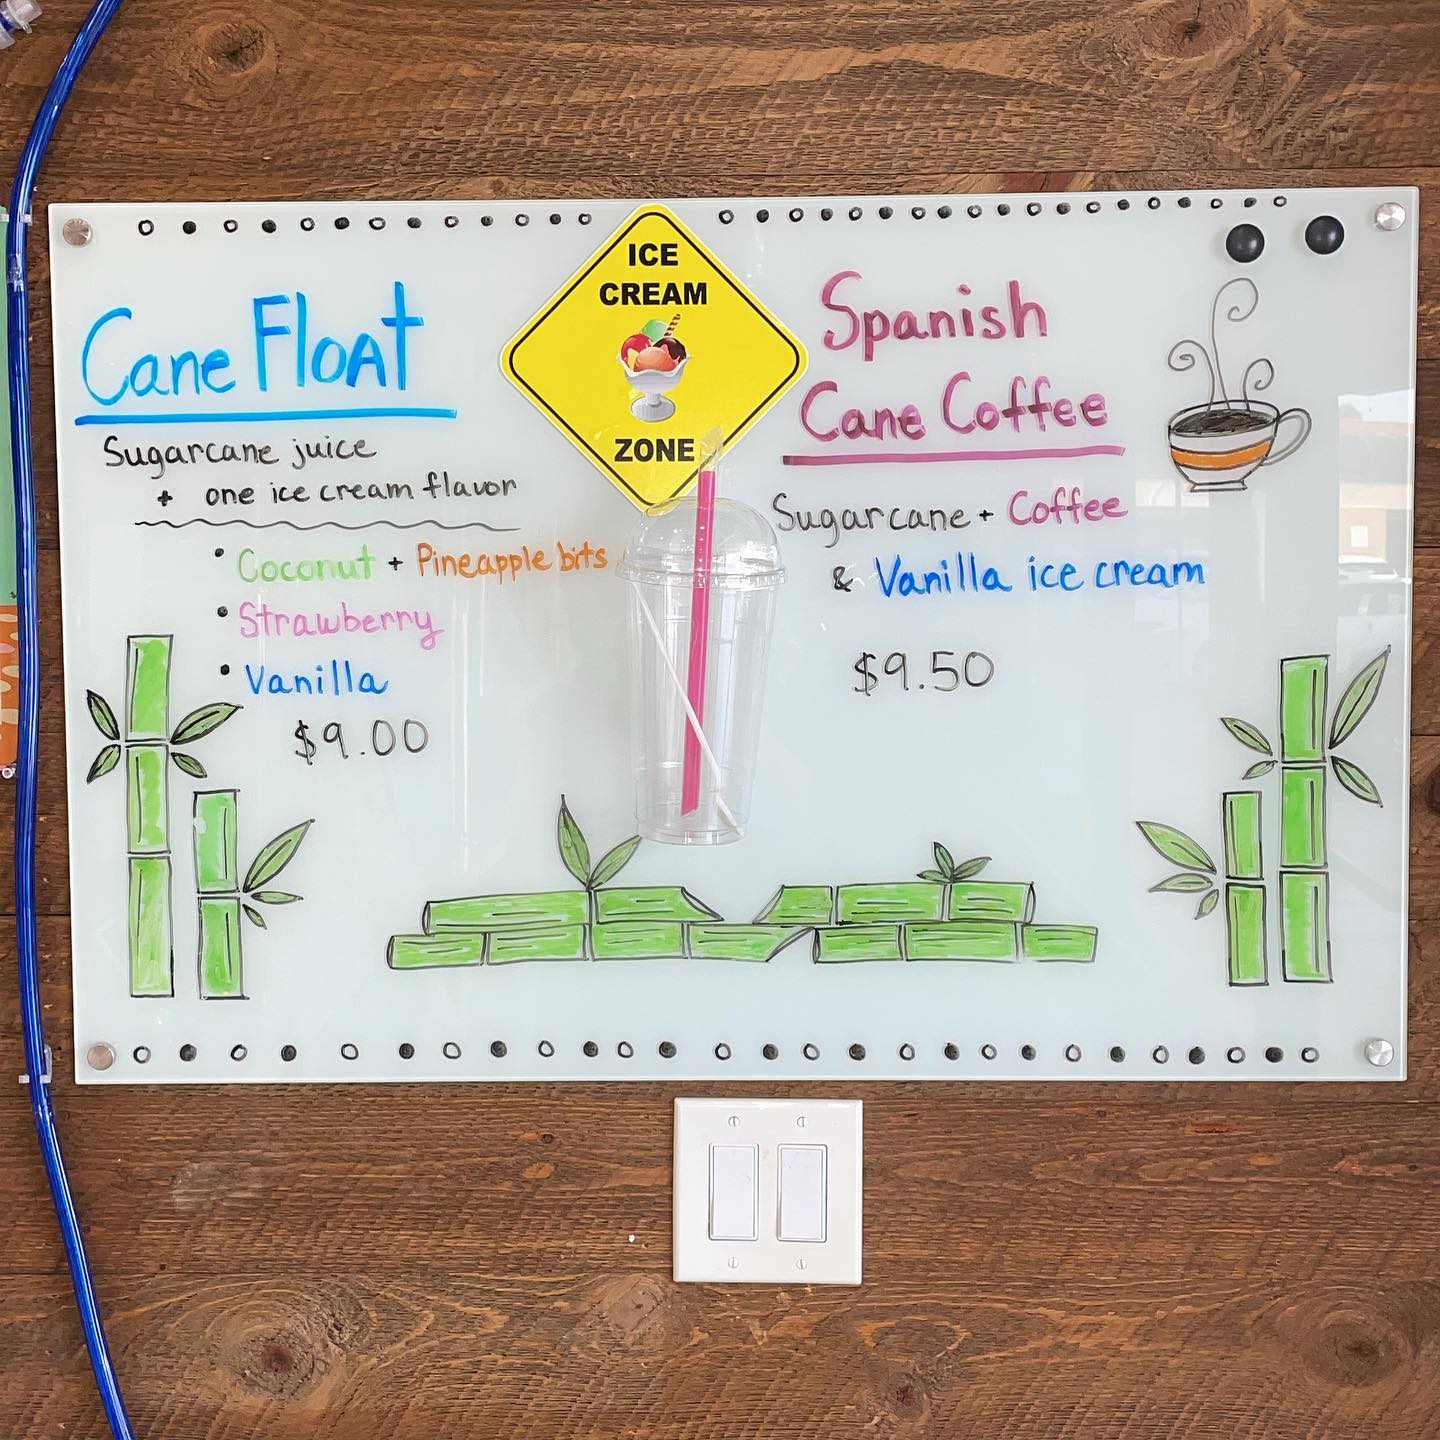 ICE
CREAM
ZONE
Cane FloAt
Sugarcane juice
+ one ice cream flavor
• Coconut + Pineapple bits
• Strawberry
• Vanilla
$9.00
Spanish
Cane Coffee
Sugarcane + Coffee
& Vanilla ice cream
$9.50